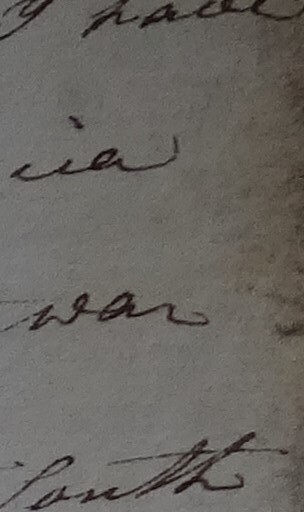 y have
ia
war
South